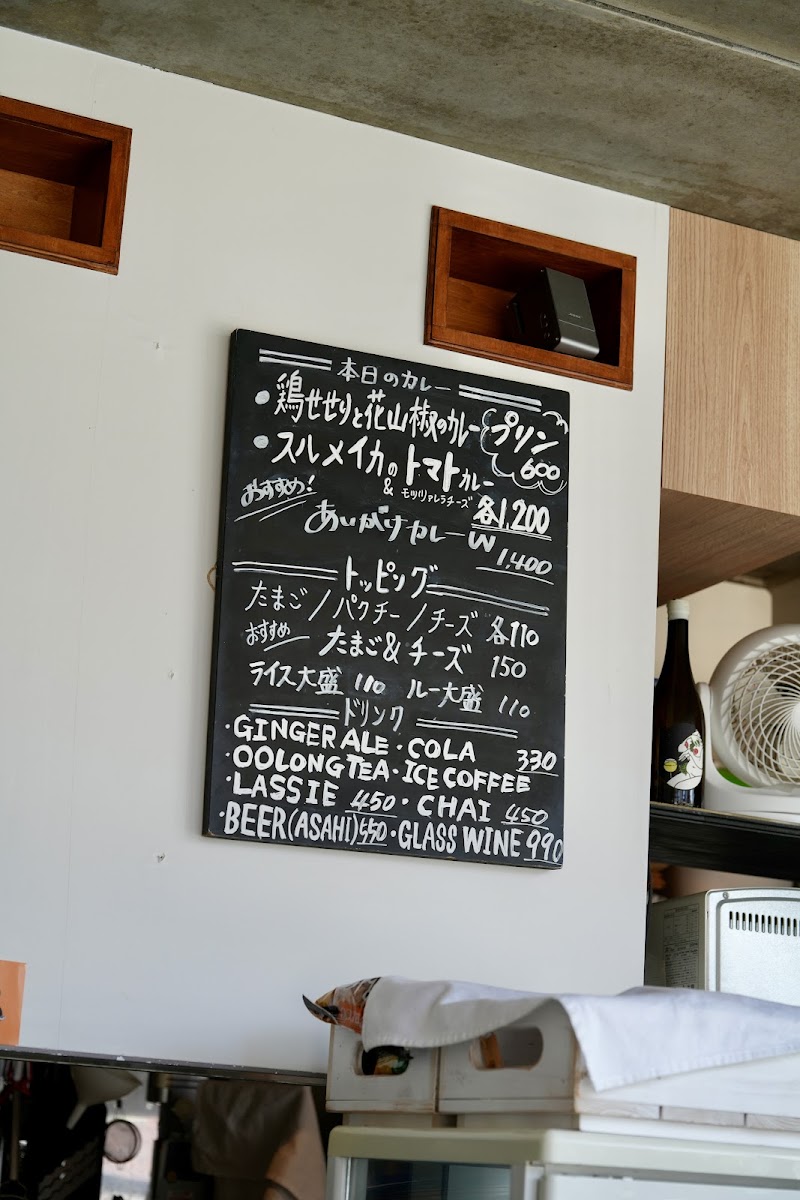 本日のカレー
・鶏せせりと花山椒のカレー
プリン
600
・スルメイカのトマトカレー
& モッツァレラチーズ
各1,200
おすすめ!
あいがけカレーW
1,400
トッピング
たまご/パクチー/チーズ 各110
おすすめ たまご&チーズ 150
ライス大盛 110 ルー大盛 110
ドリンク
・GINGER ALE・COLA 330
・OOLONG TEA・ICE COFFEE
・LASSIE 450・CHAI 450
・BEER(ASAHI)550・GLASS WINE 990